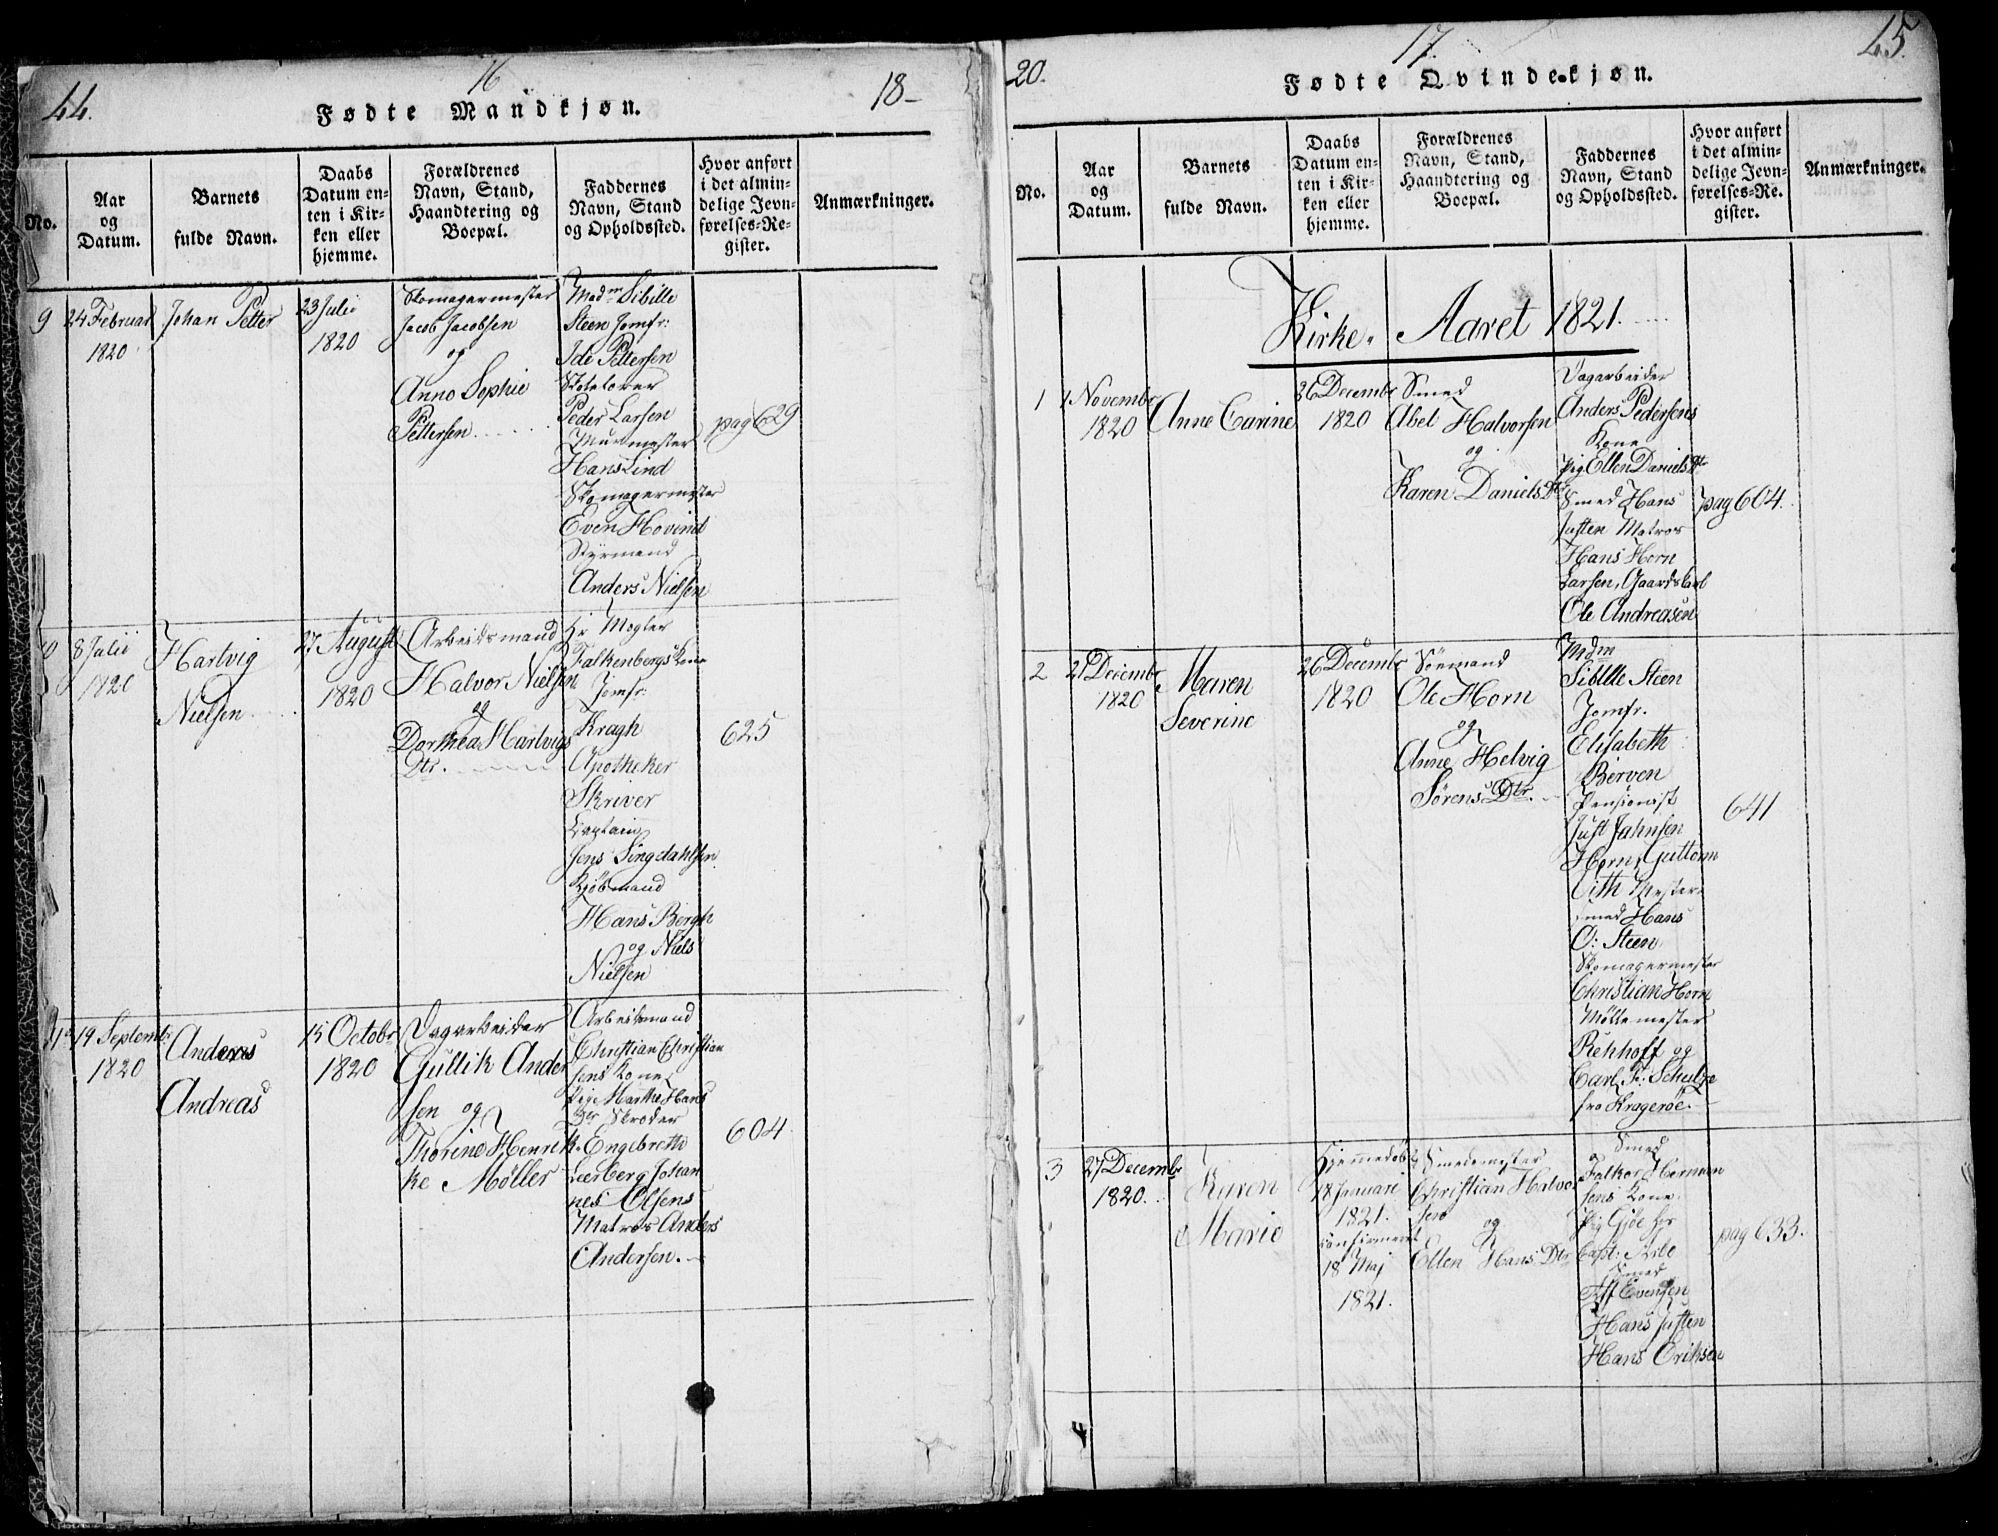 44.
16
18-
Fødte Mandkjøn.
No.
Aar
og
Datum.
Barnets
fulde Navn.
Daabs
Datum en-
ten i Kir-
ken eller
hjemme.
Forældrenes
Navn, Stand,
Haandtering og
Boepæl.
Faddernes
Navn, Stand
og Opholdssted.
Hvor anført
i det almin-
delige Jevn-
førelses-Re-
gister.
Anmærkninger.
9
24 Februar
1820
Johan Petter
23 Julii
1820
Skomagermester
Jacob Jacobsen
og
Anno Sophie
Pettersen
Madm Sibille
Steen Jomfr:
Ide Pettersen
Peder Larsen
Muurmester
Hans Lind
Skomagermester
Even Hovind
Styrmand
Anders Nielsen
pag 629
8 Julii
1820
Hartvig
Nielsen
27 August
1820
Arbeidsmand
Halvor Nielsen
og
Dorthea Hartvigs
Dtr.
Hr Mægler
Falkenbergs Kone
Jomfr:
Kragh
Apotheker
Skriver
Captain
Jens Singdahlsen
Kjöbmand
Hans Bergh
og Niels
Nielsen
625
19 Septembr
1820
Anders
Andreas
15 Octobr
1820
Dagarbeider
Gullik Ander
sen og
Thorine Henrik
ke Møller
Arbeidsmand
Christian Christian
sens Kone
Pige Marthe Hans
Dtr Skræder
Engebreth
Leerberg Johan
nes Olsens
Matros Anders
Andersen.
604
20.
17.
45.
Fødte Qvindekjøn.
No.
Aar
og
Datum.
Barnets
fulde Navn.
Daabs
Datum en-
ten i Kir-
ken eller
hjemme.
Forældrenes
Navn, Stand,
Haandtering og
Boepæl.
Faddernes
Navn, Stand
og Opholdssted.
Hvor anført
i det almin-
delige Jevn-
førelses-Re-
gister.
Anmærkninger.
Kirke-Aaret 1821.
1
1 Novembr
1820
Anne Carine
26 Decembr
1820
Smed
Abel Halvorsen
og
Karen Daniels Dtr
Dagarbeider
Anders Pedersens
Kone
Pig Ellen Daniels Dtr
Smed Hans
Justen Matros
Hans Horn
Larsen, Gaardskarl
Ole Andreasen
pag 604.
2
21 Decembr
1820
Maren
Severine
26 Decembr
1820
Söemand
Ole Horn
og
Anne Helvig
Sörens Dtr.
Mdm
Sibille Steen
Jomfr.
Elisabeth
Berven
Pensionist
Just Jahnsen
Horn, Guttorm
Mester-
smed Hans
O: Steen
Skomagermester
Christian Horn
Möllemester
Rehhoff og
Carl F: Schultze
fra Krageröe.
641
3
27 Decembr
1820.
Karen
Marie
Hjemmedöbt
18 Januari
1821.
confirmeret
18 Maj
1821.
Smedemester
Christian Halvor
sen
og
Ellen Hans Dtr
Smed
Falkor Herman
sens Kone.
Pig
Capt:
Smed
Evensen
Hans Justen
Hans Eriksen
pag 633.
4